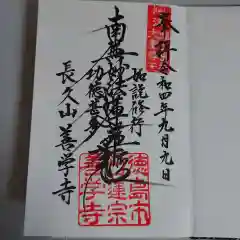 奉拝
令和四年九月九日
南無妙法蓮華経
功徳
長久山 善学寺
徳島市
日蓮宗
善学寺